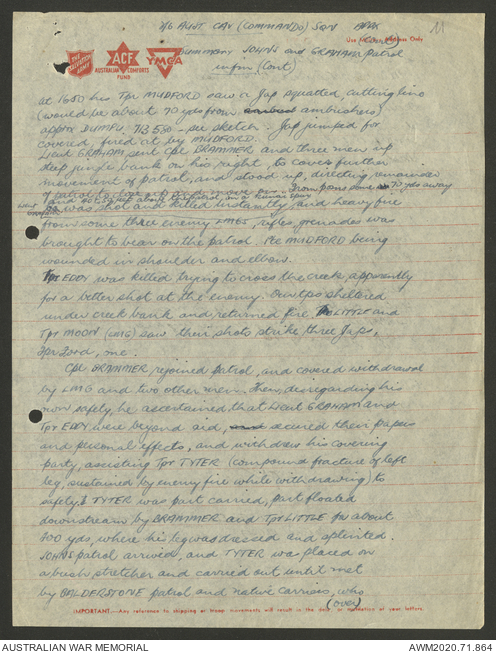 2/6 AUST CAV (COMMANDO) SQN
11
Use Address Only
THE SALVATION ARMY
ACF
AUSTRALIAN COMFORTS
FUND
YMCA
Summary JOHNS and GRAHAM Patrol
infm (Cont)
at 1650 hrs Tpr MUDFORD saw a Jap squatted, cutting
(would be about 70 yds from ambushers)
approx DUMPU 713580 - see sketch. Jap jumped for
cover & fired at by MUDFORD.
Lieut GRAHAM sent Cpl BRAMMER and three men up
steep jungle bank on his right, to cover further
movement of patrol, and stood up, directing remainder
of patrol to and move on. From some 70 yds away
and 60 ft up above the patrol on a spur
Lieut GRAHAM was shot and killed instantly, and heavy fire
from some three enemy LMGs, rifles, grenades was
brought to bear on the patrol. MUDFORD being
wounded in shoulder and elbow.
Tpr EDDY was killed trying to cross the creek, apparently
for a better shot at the enemy. Our tps sheltered
under creek bank and returned fire. Tpr LITTLE and
Tpr MOON (LMG) saw their shots strike three Japs,
Tpr Ford, one.
Cpl BRAMMER rejoined patrol, and covered withdrawal
by LMG and two other men. Then, disregarding his
own safety, he ascertained that Lieut GRAHAM and
Tpr EDDY were beyond aid, secured their papers
and personal effects, and withdrew his covering
party, assisting Tpr TYTER (compound fracture of left
leg, sustained by enemy fire while withdrawing) to
safety. TYTER was part carried, part floated
downstream by BRAMMER and Tpr LITTLE for about
300 yds, where his leg was dressed and splinted.
JOHNS patrol arrived, and TYTER was placed on
a bush stretcher and carried out until met
by BALDERSTONE patrol and native carriers, who
(over)
IMPORTANT.—Any reference to shipping or troop movements will result in the delay or mutilation of your letters.
AUSTRALIAN WAR MEMORIAL
AWM2020.71.864